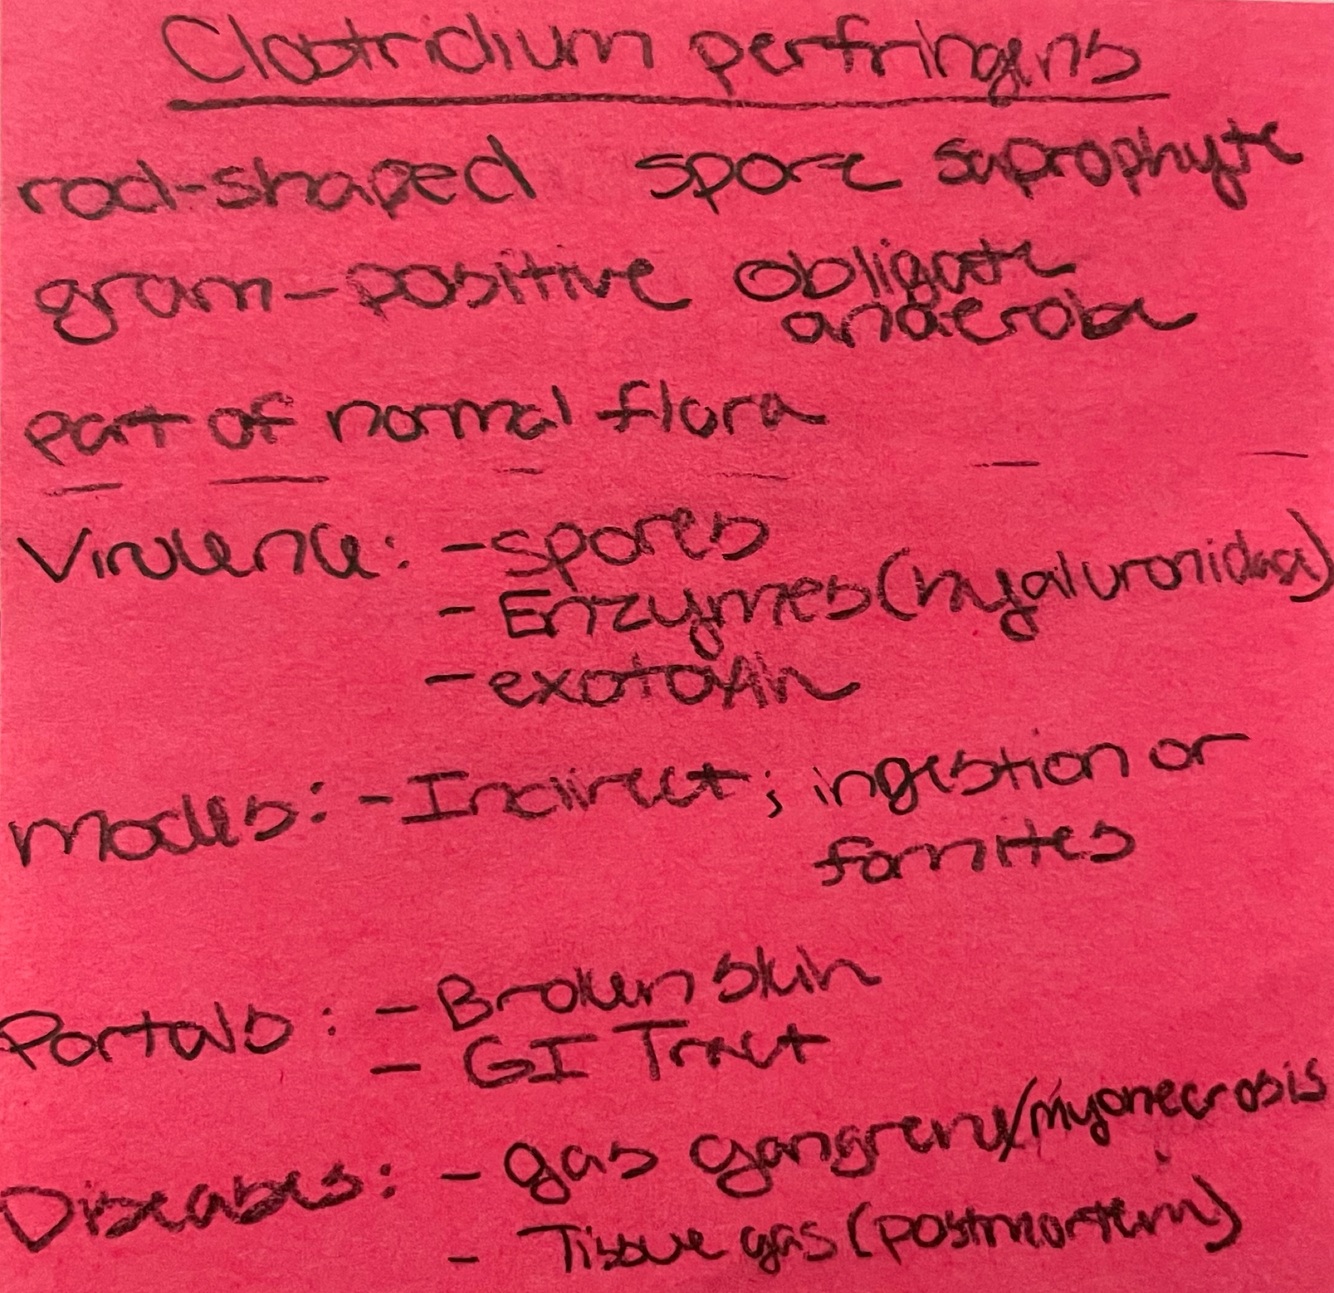 Clostridium perfringens
rod-shaped spore saprophyte
gram-positive obligate
anaerobe
part of normal flora
Virulence: - spores
- Enzymes (hyaluronidase)
- exotoxin
modes: - Indirect; ingestion or
fomites
Portals: - Broken skin
- GI Tract
Diseases: - gas gangrene/myonecrosis
- Tissue gas (postmortem)